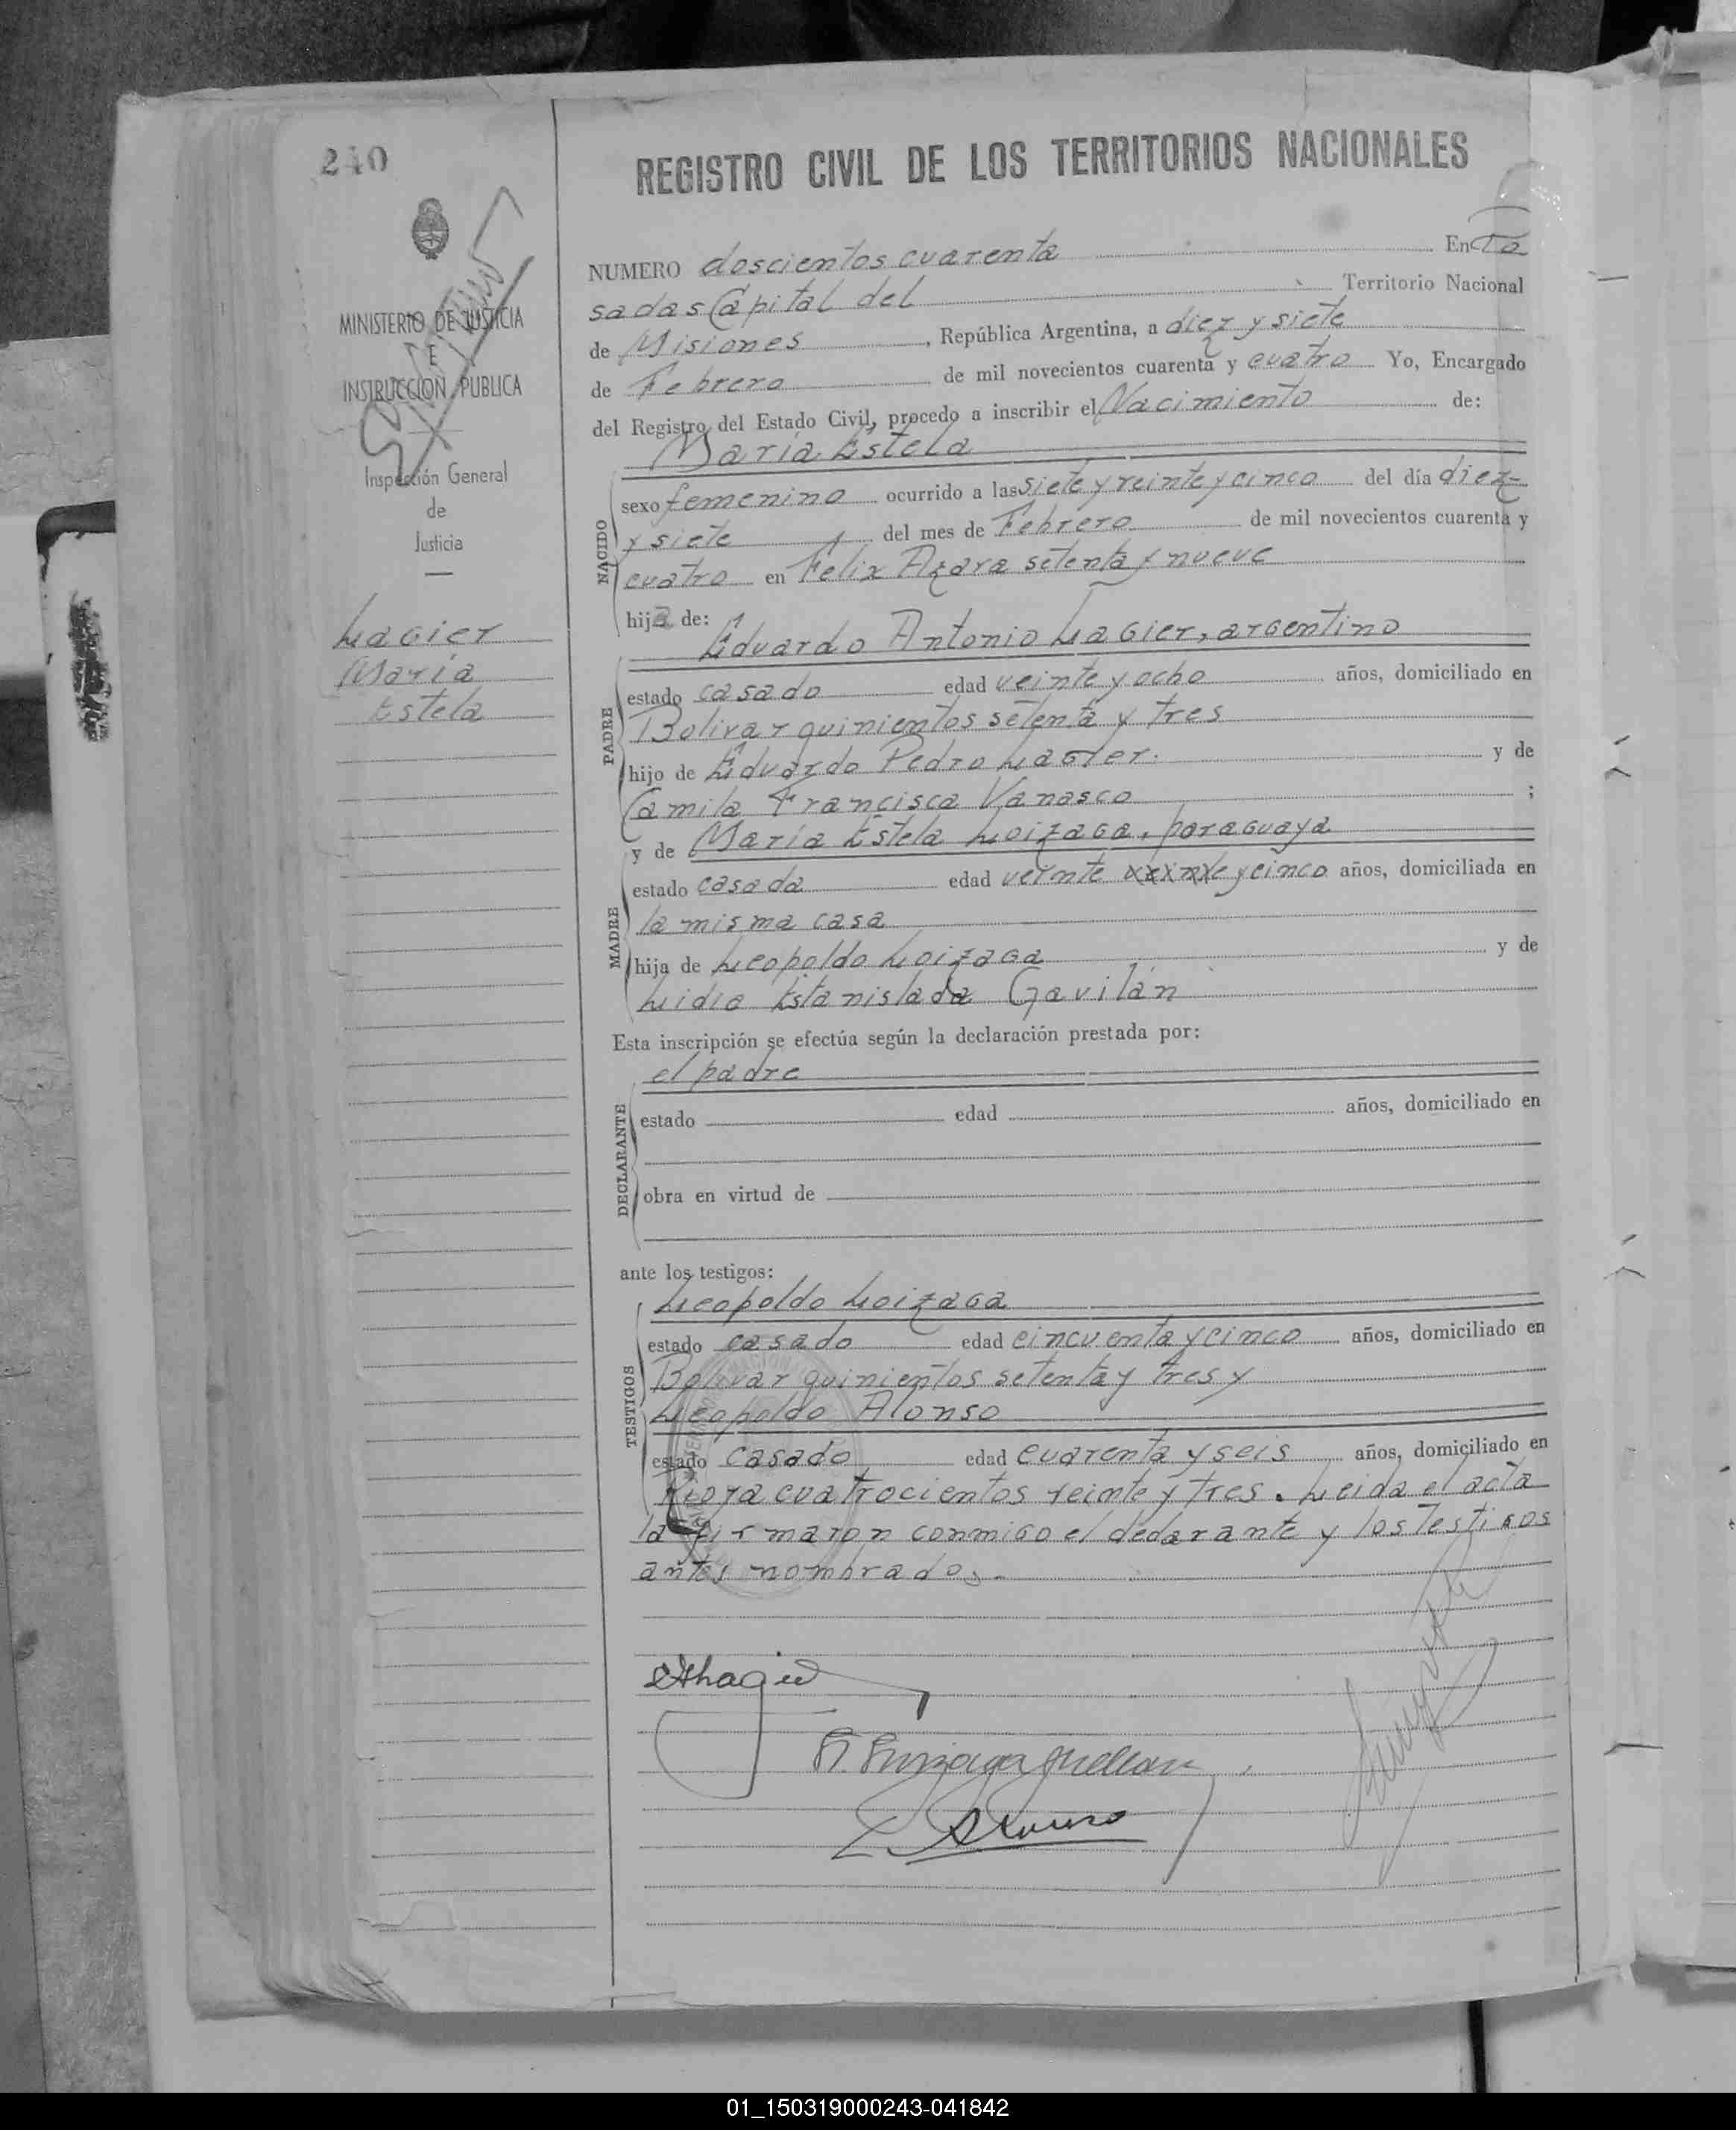 240
MINISTERIO DE JUSTICIA
E
INSTRUCCION PUBLICA
Inspección General
de
Justicia
Lagier
María
Estela
REGISTRO CIVIL DE LOS TERRITORIOS NACIONALES
NUMERO doscientos cuarenta En Po
sadas Capital del Territorio Nacional
de Misiones, República Argentina, a diez y siete
de Febrero de mil novecientos cuarenta y cuatro Yo, Encargado
del Registro del Estado Civil, procedo a inscribir el Nacimiento de:
María Estela
NACIDO
sexo femenino ocurrido a las siete y veinte y cinco del día diez
y siete del mes de Febrero de mil novecientos cuarenta y
cuatro en Felix Azara setenta y nueve
hija de:
Eduardo Antonio Lagier, argentino
PADRE
estado casado edad veinte y ocho años, domiciliado en
Bolivar quinientos setenta y tres
hijo de Eduardo Pedro Lagier. y de
Camila Francisca Vanasco ;
y de María Estela Loizaga, paraguaya
MADRE
estado casada edad veinte y cinco años, domiciliada en
la misma casa
hija de Leopoldo Loizaga y de
Lidia Estanislada Gavilán
Esta inscripción se efectúa según la declaración prestada por:
el padre
DECLARANTE
estado edad años, domiciliado en
obra en virtud de
ante los testigos:
Leopoldo Loizaga
TESTIGOS
estado casado edad cincuenta y cinco años, domiciliado en
Bolivar quinientos setenta y tres y
Leopoldo Alonso
estado casado edad cuarenta y seis años, domiciliado en
Rioja cuatrocientos veinte y tres. Leida el acta
la firmaron conmigo el declarante y los testigos
antes nombrados.-
01_150319000243-041842